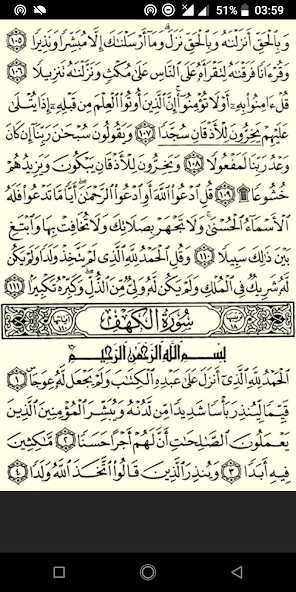 51% 03:59
وَبِالْحَقِّ أَنزَلْنَاهُ وَبِالْحَقِّ نَزَلَ وَمَا أَرْسَلْنَاكَ إِلَّا مُبَشِّرًا وَنَذِيرًا ١٠٥
وَقُرْءَانًا فَرَقْنَاهُ لِتَقْرَأَهُ عَلَى النَّاسِ عَلَى مُكْثٍ وَنَزَّلْنَاهُ تَنزِيلًا ١٠٦
قُلْ ءَامِنُوا بِهِ أَوْ لَا تُؤْمِنُوا إِنَّ الَّذِينَ أُوتُوا الْعِلْمَ مِن قَبْلِهِ إِذَا يُتْلَى
عَلَيْهِمْ يَخِرُّونَ لِلْأَذْقَانِ سُجَّدًا ١٠٧ وَيَقُولُونَ سُبْحَانَ رَبِّنَا إِن كَانَ
وَعْدُ رَبِّنَا لَمَفْعُولًا ١٠٨ وَيَخِرُّونَ لِلْأَذْقَانِ يَبْكُونَ وَيَزِيدُهُمْ
خُشُوعًا ۩ ١٠٩ قُلِ ادْعُوا اللَّهَ أَوِ ادْعُوا الرَّحْمَٰنَ أَيًّا مَّا تَدْعُوا فَلَهُ
الْأَسْمَاءُ الْحُسْنَى وَلَا تَجْهَرْ بِصَلَاتِكَ وَلَا تُخَافِتْ بِهَا وَابْتَغِ
بَيْنَ ذَٰلِكَ سَبِيلًا ١١٠ وَقُلِ الْحَمْدُ لِلَّهِ الَّذِي لَمْ يَتَّخِذْ وَلَدًا وَلَمْ يَكُن
لَّهُ شَرِيكٌ فِي الْمُلْكِ وَلَمْ يَكُن لَّهُ وَلِيٌّ مِّنَ الذُّلِّ وَكَبِّرْهُ تَكْبِيرًا ١١١
سُورَةُ الْكَهْفِ
بِسْمِ اللَّهِ الرَّحْمَٰنِ الرَّحِيمِ
الْحَمْدُ لِلَّهِ الَّذِي أَنزَلَ عَلَى عَبْدِهِ الْكِتَابَ وَلَمْ يَجْعَل لَّهُ عِوَجًا ١
قَيِّمًا لِّيُنذِرَ بَأْسًا شَدِيدًا مِّن لَّدُنْهُ وَيُبَشِّرَ الْمُؤْمِنِينَ الَّذِينَ
يَعْمَلُونَ الصَّالِحَاتِ أَنَّ لَهُمْ أَجْرًا حَسَنًا ٢ مَّاكِثِينَ
فِيهِ أَبَدًا ٣ وَيُنذِرَ الَّذِينَ قَالُوا اتَّخَذَ اللَّهُ وَلَدًا ٤